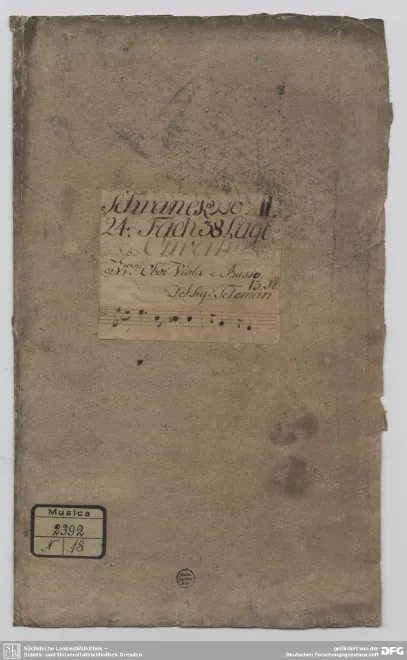 Schranck No. II.
24. Fach 38 Lage
Ouvert
VV.ni Oboi Viola e Basso.
13. St.
Del Sig.r Teleman
Musica
2392
N 18
Sächsische Landesbibliothek –
Staats- und Universitätsbibliothek Dresden
gefördert von der
Deutschen Forschungsgemeinschaft
DFG